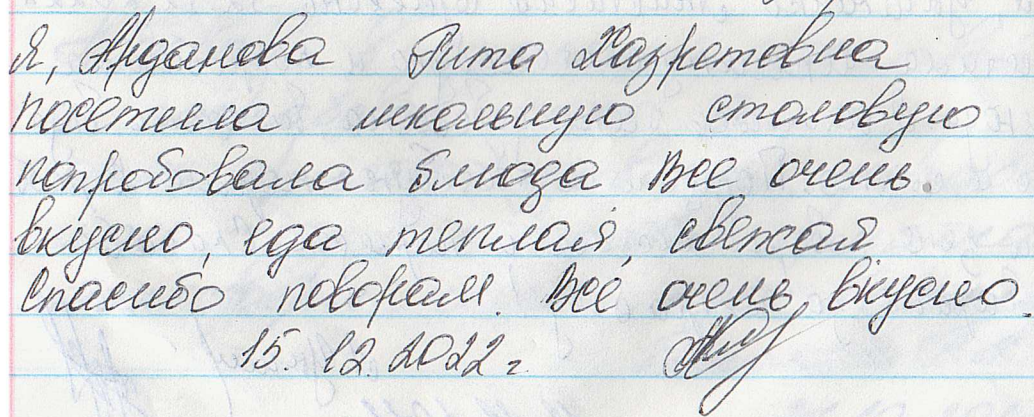 Я, Арданова Рита Хазретовна
посетила школьную столовую
попробовала блюда Все очень.
вкусно, еда теплая, свежая
Спасибо поворам. Все очень вкусно.
15.12.2022г.